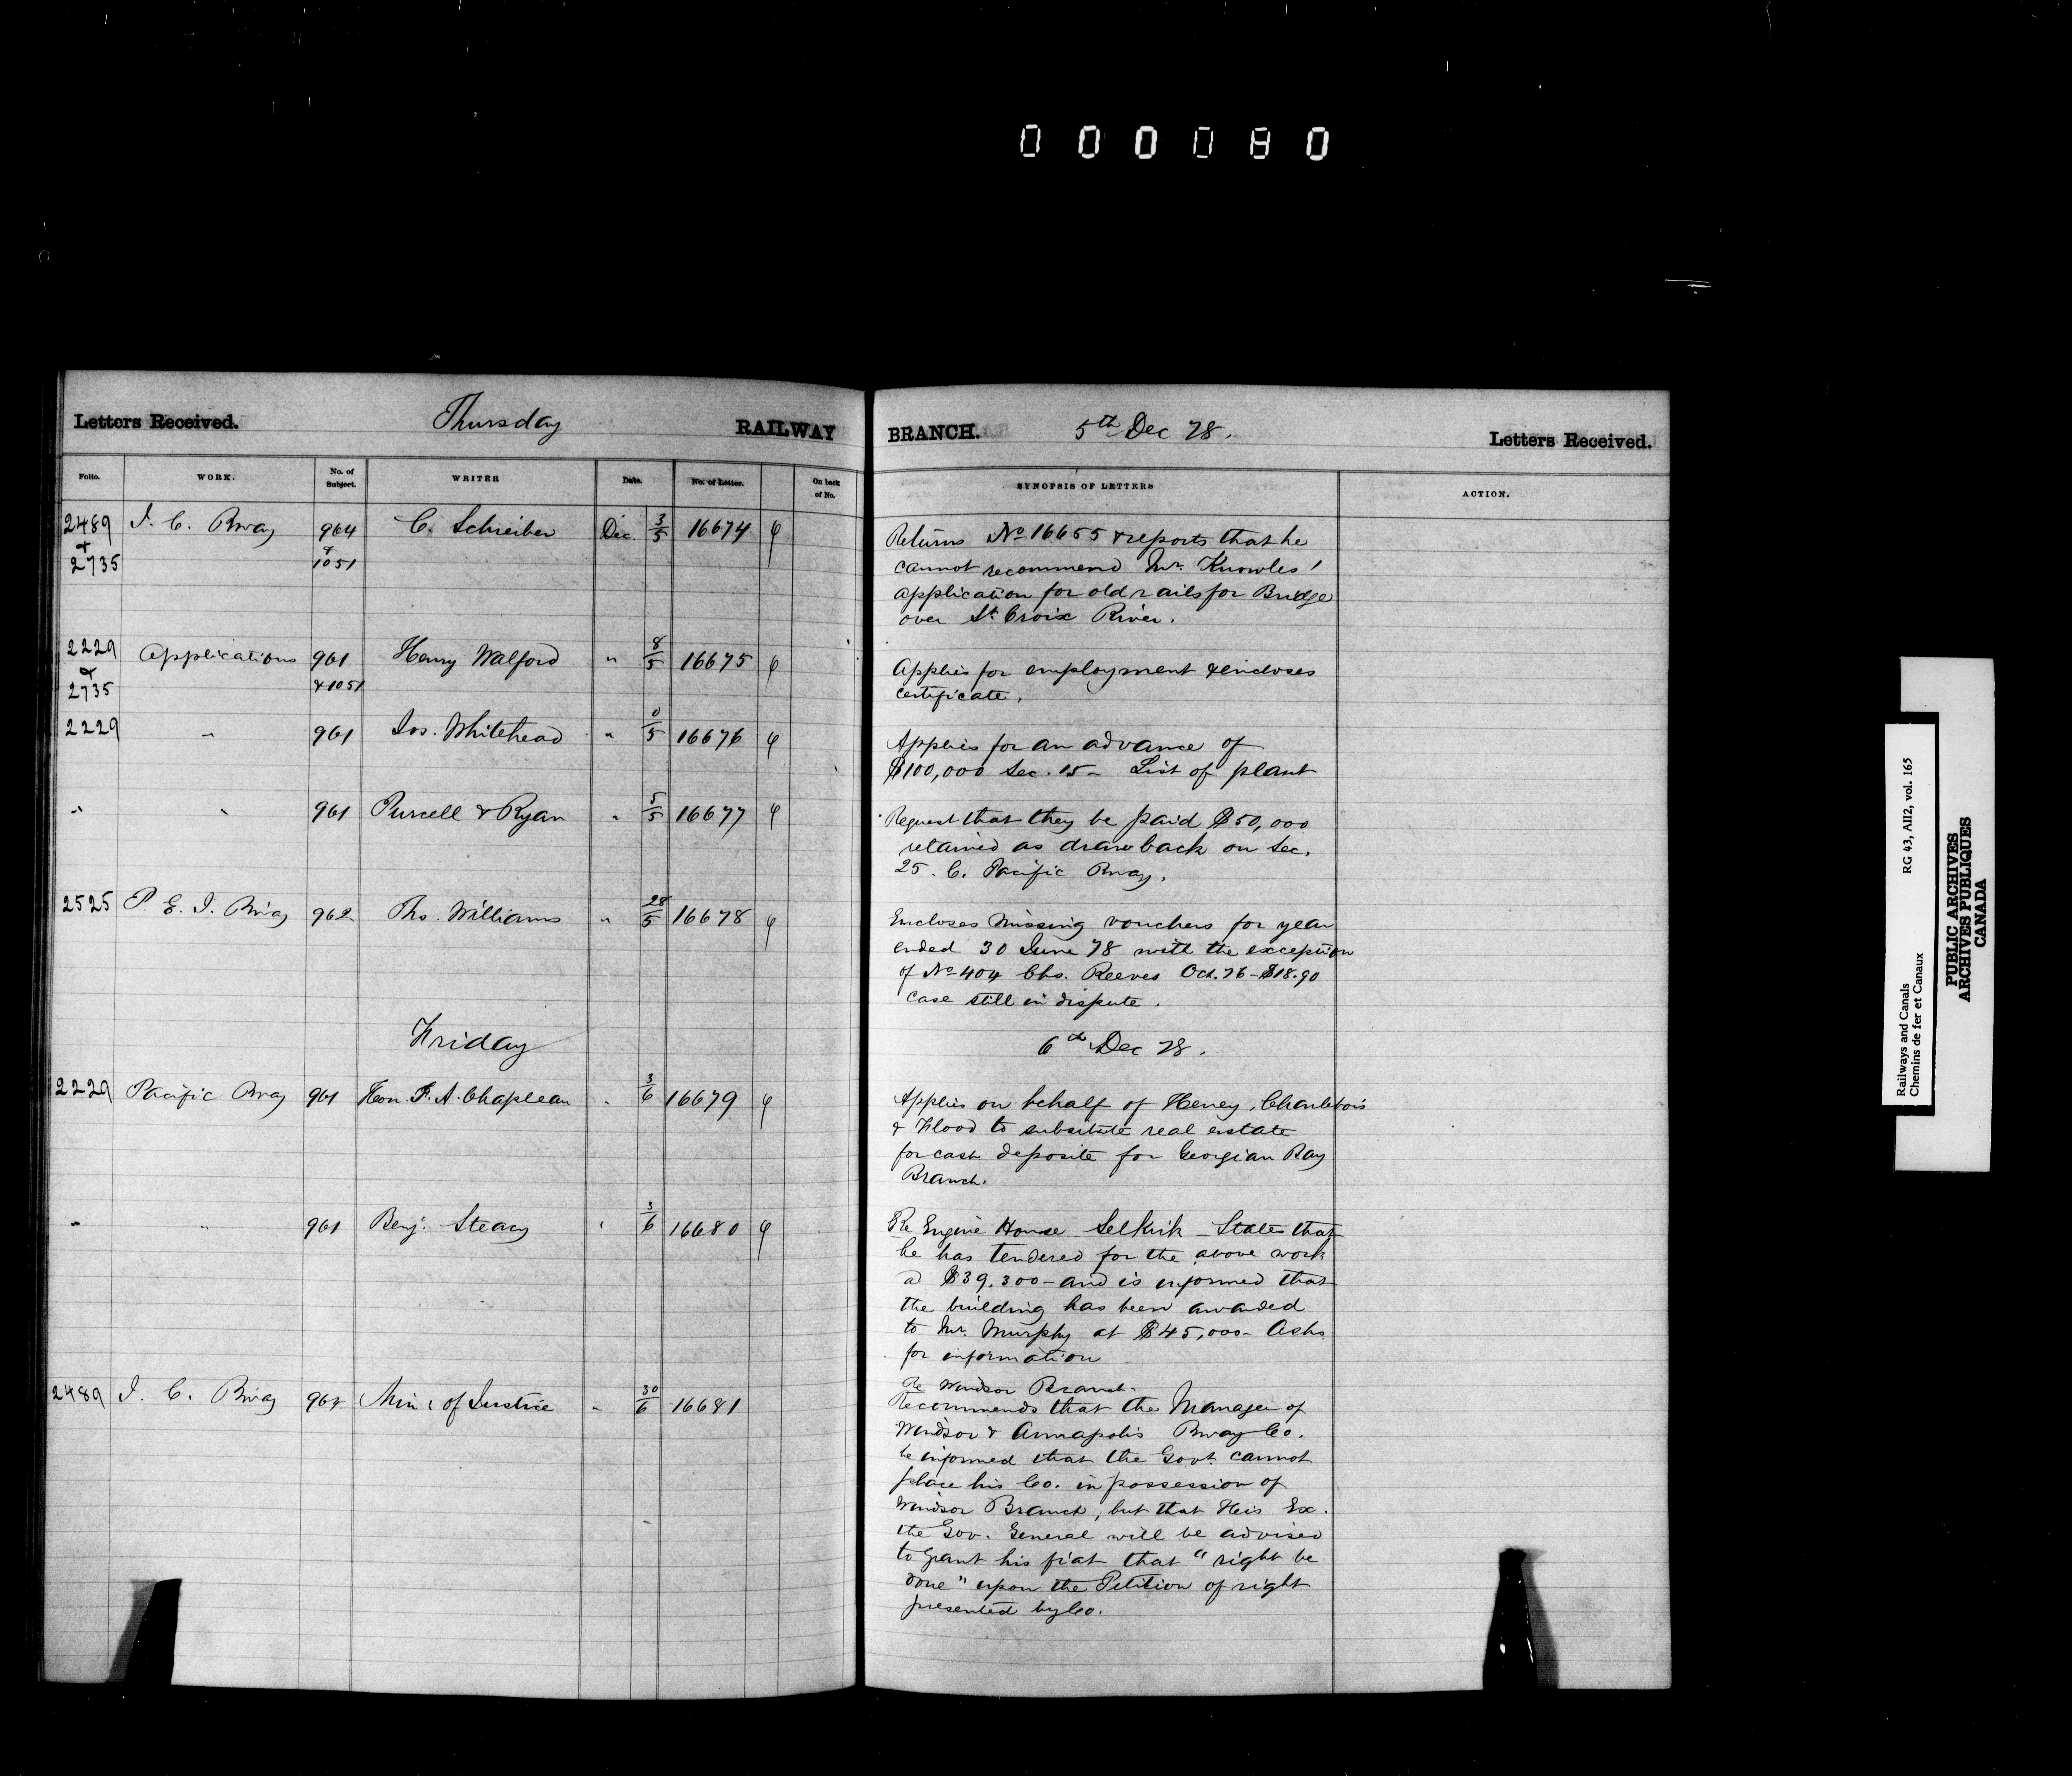 000080
Letters Received. Thursday RAILWAY BRANCH. 5th Dec 78. Letters Received.
Folio. WORK. No. of Subject. WRITER Date. No. of Letter. On back of No. SYNOPSIS OF LETTERS ACTION.
2489 & 2735 I. C. Rway 964 & 1051 C. Schreiber Dec. 3/5 16674
Returns No 16655 & reports that he
cannot recommend Mr. Knowles'
application for old rails for Bridge
over St Croix River.
2229 & 2735 Applications 961 & 1051 Henry Walford " 8/5 16675
Applies for employment & encloses
certificate.
2229 " 961 Jos. Whitehead " 0/5 16676
Applies for an advance of
$100,000 Sec. 15 - List of plant
" " 961 Purcell & Ryan " 5/5 16677
Request that they be paid $50,000
retained as drawback on Sec.
25. C. Pacific Rway.
2525 P. E. I. Rway 962 Tho. Williams " 28/5 16678
Encloses missing vouchers for year
ended 30 June 78 with the exception
of No 404 Chs. Reeves Oct. 76 - $18.90
case still in dispute.
Friday 6th Dec 78.
2229 Pacific Rway 961 Hon. J. A. Chapleau " 3/6 16679
Applies on behalf of Heney, Charlebois
& Flood to substitute real estate
for cash deposite for Georgian Bay
Branch.
" " 961 Benj. Steacy " 3/6 16680
Re Engine House Selkirk - States that
he has tendered for the above work
at $39,300 - and is informed that
the building has been awarded
to Mr. Murphy at $45,000 - Asks
for information
2489 I. C. Rway 964 Min: of Justice " 30/6 16681
Re Windsor Branch.
Recommends that the Manager of
Windsor & Annapolis Rway Co.
be informed that the Govt. cannot
place his Co. in possession of
Windsor Branch, but that His Ex.
the Gov. General will be advised
to grant his fiat that "right be
done" upon the Petition of right
presented by Co.
Railways and Canals RG 43, AII2, vol. 165
Chemins de fer et Canaux
PUBLIC ARCHIVES
ARCHIVES PUBLIQUES
CANADA